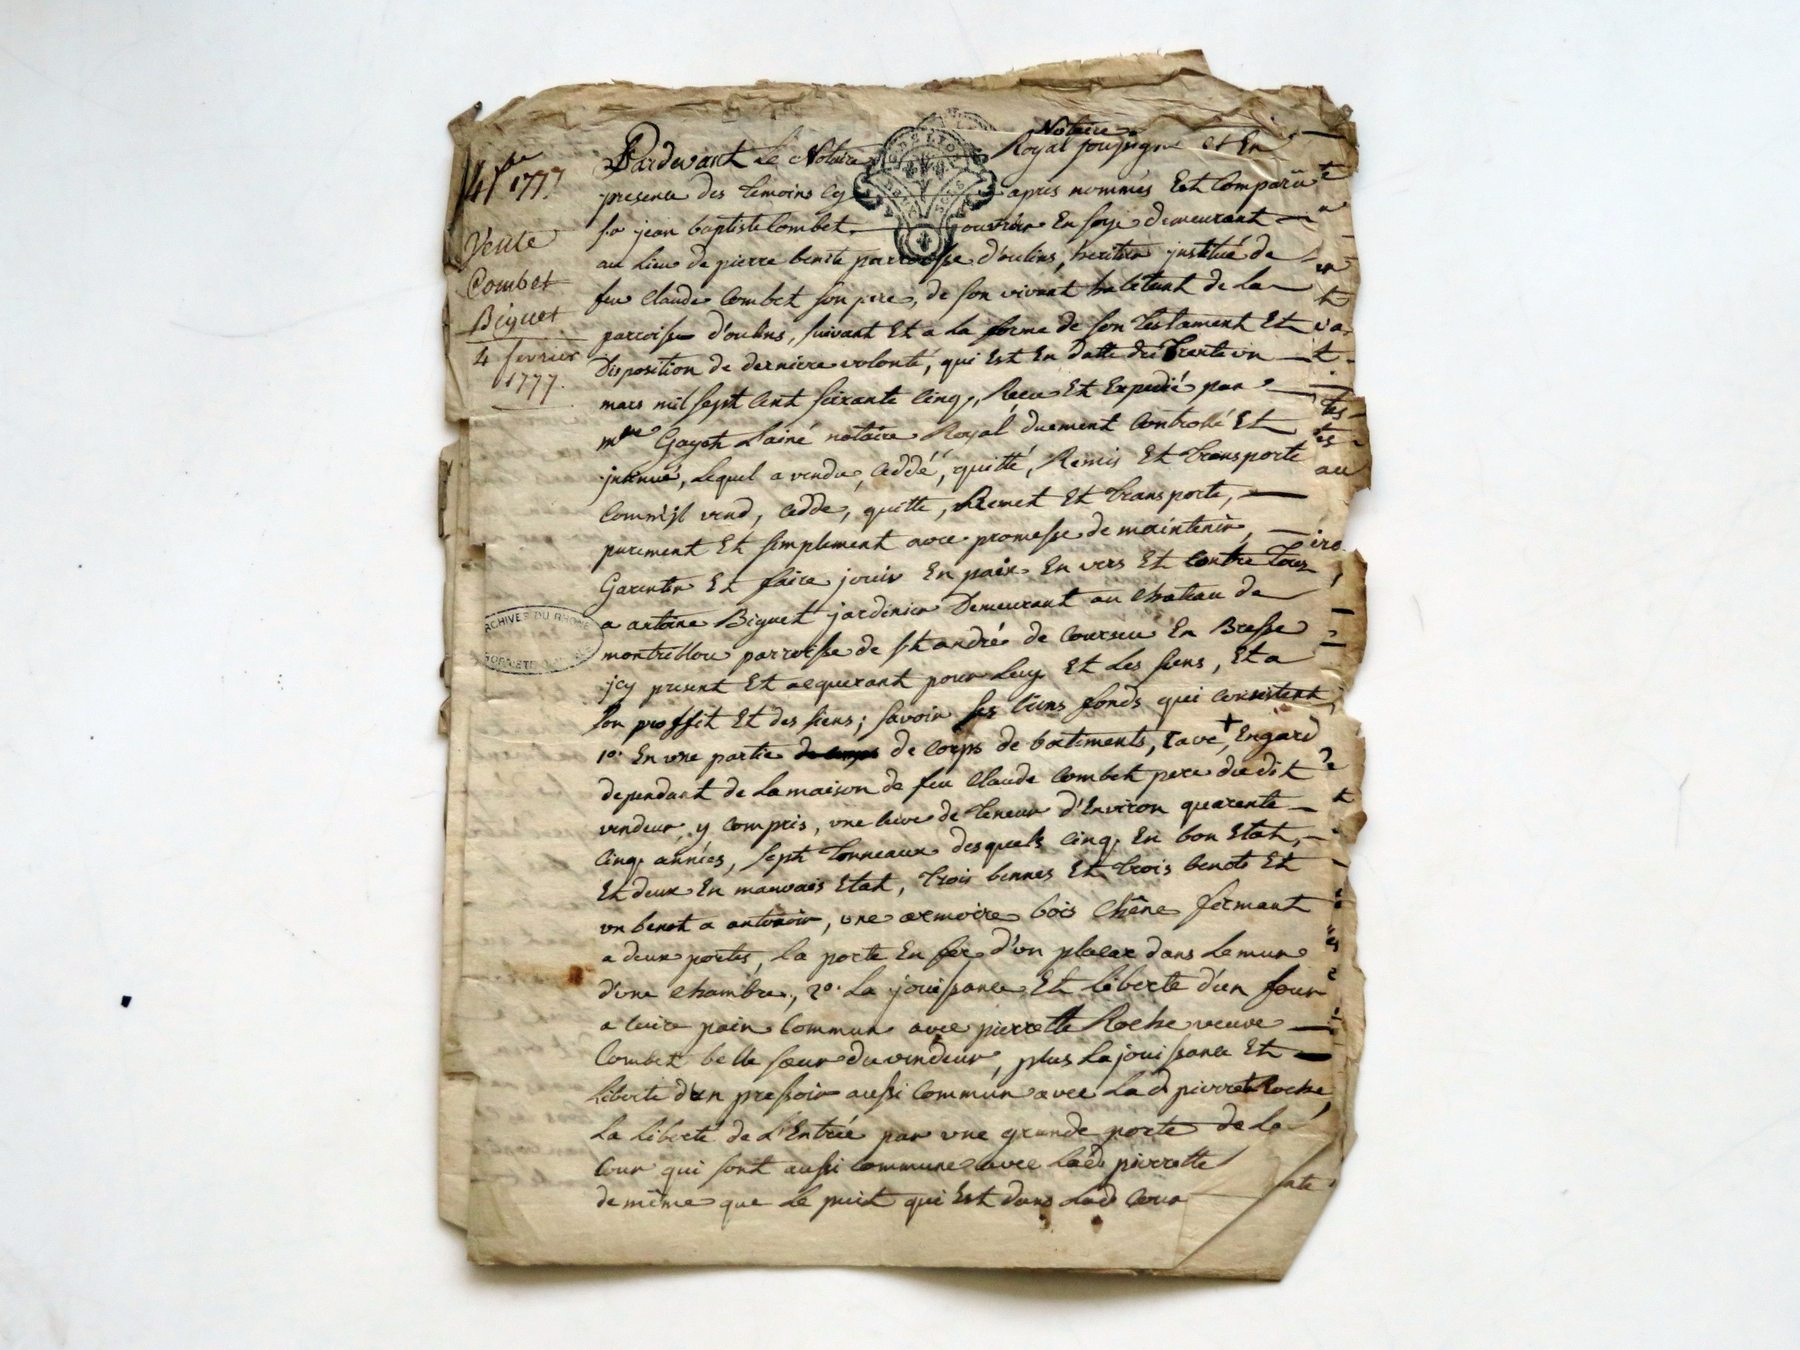 1777
Vente
Combet
Biguet
4 fevrier
1777.
ARCHIVES DU RHONE
Notaire
Pardevant Le Notaire Royal soussigné et En
presence des temoins cy après nommés Est Comparu
sr jean baptiste Combet ouvrier En soye demeurant
au Lieu de pierre benite parroisse d'oulins, heritier jnstitué de
feu Claude Combet son pere, de son vivant habitant de La
paroisse d'oulins, suivant Et a La forme de son testament Et
Disposition de derniere volonté, qui Est En datte du Trente un
mars mil sept Cent soixante Cinq, Receu Et Expedié par
mtre Gayet L'ainé notaire Royal duement Controllé Et
jnsinué, Lequel a vendu, Ceddé, quitté, Remis Et transporte
Comm'jl vend, Cedde, quitte, Remet Et transporte,
purement Et simplement avec promesse de maintenir,
Garentir Et faire jouir En paix En vers Et Contre Tous
a antoine Biguet jardinier Demeurant au chateau de
montriblou parroisse de st andré de Courcu En Bresse
jcy present Et acquerant pour Luy Et Les siens, Et a
son proffit Et des siens; savoir ses biens fonds qui Consistent
1o. En une partie de corps de batiments, cave, +
dependant de La maison de feu Claude Combet pere du dit
vendeur, y Compris, une cuve de teneur d'Environ quarente
Cinq années, sept tonneaux desquels Cinq En bon Etat,
Et deux En mauvais Etat, trois bennes Et trois benots Et
un benot a , une armoire bois Chêne fermant
a deux portes, La porte En fer d'un placar dans Le mur
d'une chambre, 2o. La jouissance Et Liberte d'un four
a cuire pain Commun avec pierrette Roche veuve
Combet belle sœur du vendeur, plus La jouissance Et
Liberte d'un pressoir aussi Commun avec La d pierrette Roche
La Liberté de L'Entrée par une grande porte de La
Cour qui sont aussi Commune avec Lade pierrette
de même que Le puit qui Est dans Lade Cour